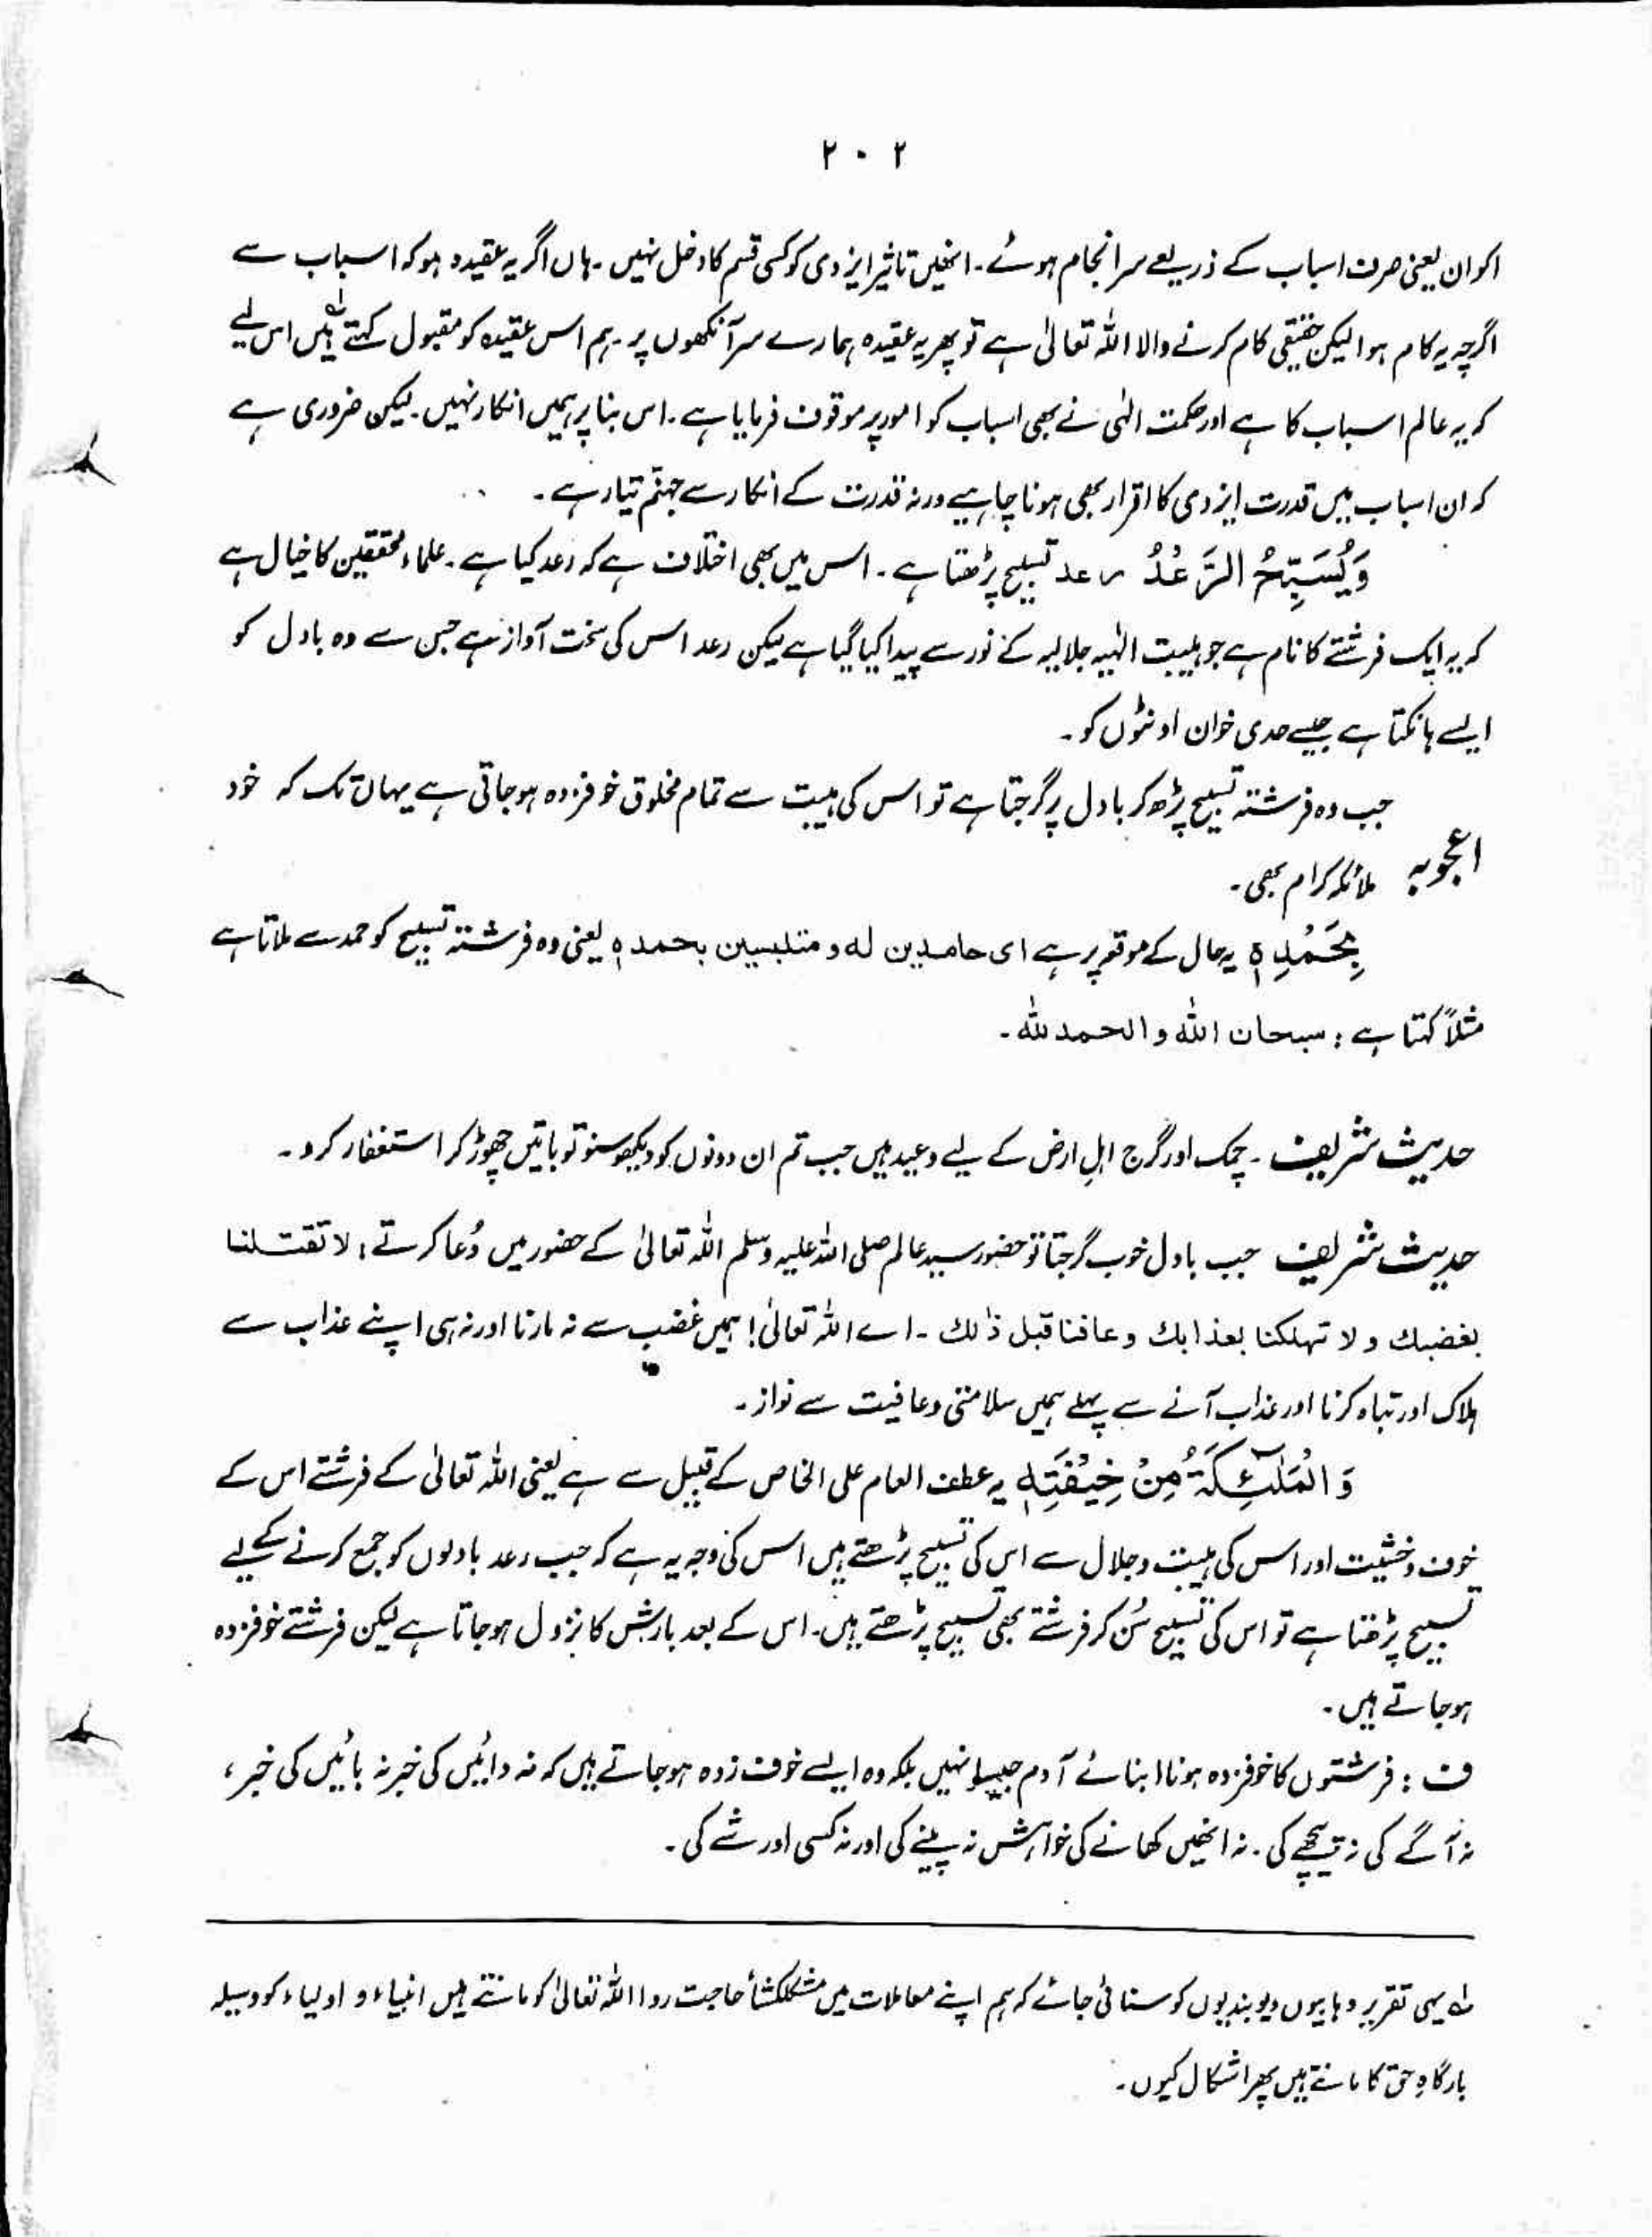 ۲۰۲
اکوان یعنی صرف اسباب کے ذریعے سرانجام ہوئے۔ انھیں تاثیر ایزدی کو کسی قسم کا دخل نہیں۔ ہاں اگر یہ عقیدہ ہو کہ اسباب سے
اگرچہ یہ کام ہوا لیکن حقیقی کام کرنے والا اللہ تعالیٰ ہے تو پھر یہ عقیدہ ہمارے سر آنکھوں پر۔ ہم اس عقیدہ کو مقبول کہتے ہیں لہ اس لیے
کہ یہ عالم اسباب کا ہے اور حکمت الٰہی نے بھی اسباب کو امور پر موقوف فرمایا ہے۔ اس بنا پر ہمیں انکار نہیں۔ لیکن ضروری ہے
کہ ان اسباب میں قدرت ایزدی کا اقرار بھی ہونا چاہیے ورنہ قدرت کے انکار سے جہنم تیار ہے۔
وَيُسَبِّحُ الرَّعْدُ رعد تسبیح پڑھتا ہے۔ اس میں بھی اختلاف ہے کہ رعد کیا ہے۔ علماء محققین کا خیال ہے
کہ یہ ایک فرشتے کا نام ہے جو ہیبت الٰہیہ جلالیہ کے نور سے پیدا کیا گیا ہے لیکن رعد اس کی سخت آواز ہے جس سے وہ بادل کو
ایسے ہانکتا ہے جیسے حدی خوان اونٹوں کو۔
جب وہ فرشتہ تسبیح پڑھ کر بادل پر گرجتا ہے تو اس کی ہیبت سے تمام مخلوق خوفزدہ ہو جاتی ہے یہاں تک کہ خود
اعجوبہ ملائکہ کرام بھی۔
بِحَمْدِهٖ یہ حال کے موقع پر ہے ای حامدین له و متلبسین بحمدہٖ یعنی وہ فرشتہ تسبیح کو حمد سے ملاتا ہے
مثلاً کہتا ہے : سبحان اللہ و الحمد للہ۔
حدیث شریف۔ چمک اور گرج اہلِ ارض کے لیے وعید ہیں جب تم ان دونوں کو دیکھو سنو تو باتیں چھوڑ کر استغفار کرو۔
حدیث شریف جب بادل خوب گرجتا تو حضور سید عالم صلی اللہ علیہ وسلم اللہ تعالیٰ کے حضور میں دُعا کرتے : لا تقتلنا
بغضبك و لا تهلكنا بعذابك و عافنا قبل ذٰلك ۔ اے اللہ تعالیٰ! ہمیں غضب سے نہ مارنا اور نہ ہی اپنے عذاب سے
ہلاک اور تباہ کرنا اور عذاب آنے سے پہلے ہمیں سلامتی و عافیت سے نواز۔
وَ الْمَلٰٓئِكَةُ مِنْ خِيْفَتِهٖ یہ عطف العام علی الخاص کے قبیل سے ہے یعنی اللہ تعالیٰ کے فرشتے اس کے
خوف و خشیت اور اس کی ہیبت و جلال سے اس کی تسبیح پڑھتے ہیں اس کی وجہ یہ ہے کہ جب رعد بادلوں کو جمع کرنے کے لیے
تسبیح پڑھتا ہے تو اس کی تسبیح سُن کر فرشتے بھی تسبیح پڑھتے ہیں۔ اس کے بعد بارش کا نزول ہو جاتا ہے لیکن فرشتے خوفزدہ
ہو جاتے ہیں۔
ف : فرشتوں کا خوفزدہ ہونا ابنائے آدم جیسا نہیں بلکہ وہ ایسے خوف زدہ ہو جاتے ہیں کہ نہ دائیں کی خبر نہ بائیں کی خبر،
نہ آگے کی نہ پیچھے کی۔ نہ انھیں کھانے کی خواہش نہ پینے کی اور نہ کسی اور شے کی۔
لہ یہی تقریر وہابیوں دیوبندیوں کو سنائی جائے کہ ہم اپنے معاملات میں مشکلکشا حاجت روا اللہ تعالیٰ کو مانتے ہیں انبیاء و اولیاء کو وسیلہ
بارگاہِ حق کا مانتے ہیں پھر اشکال کیوں۔